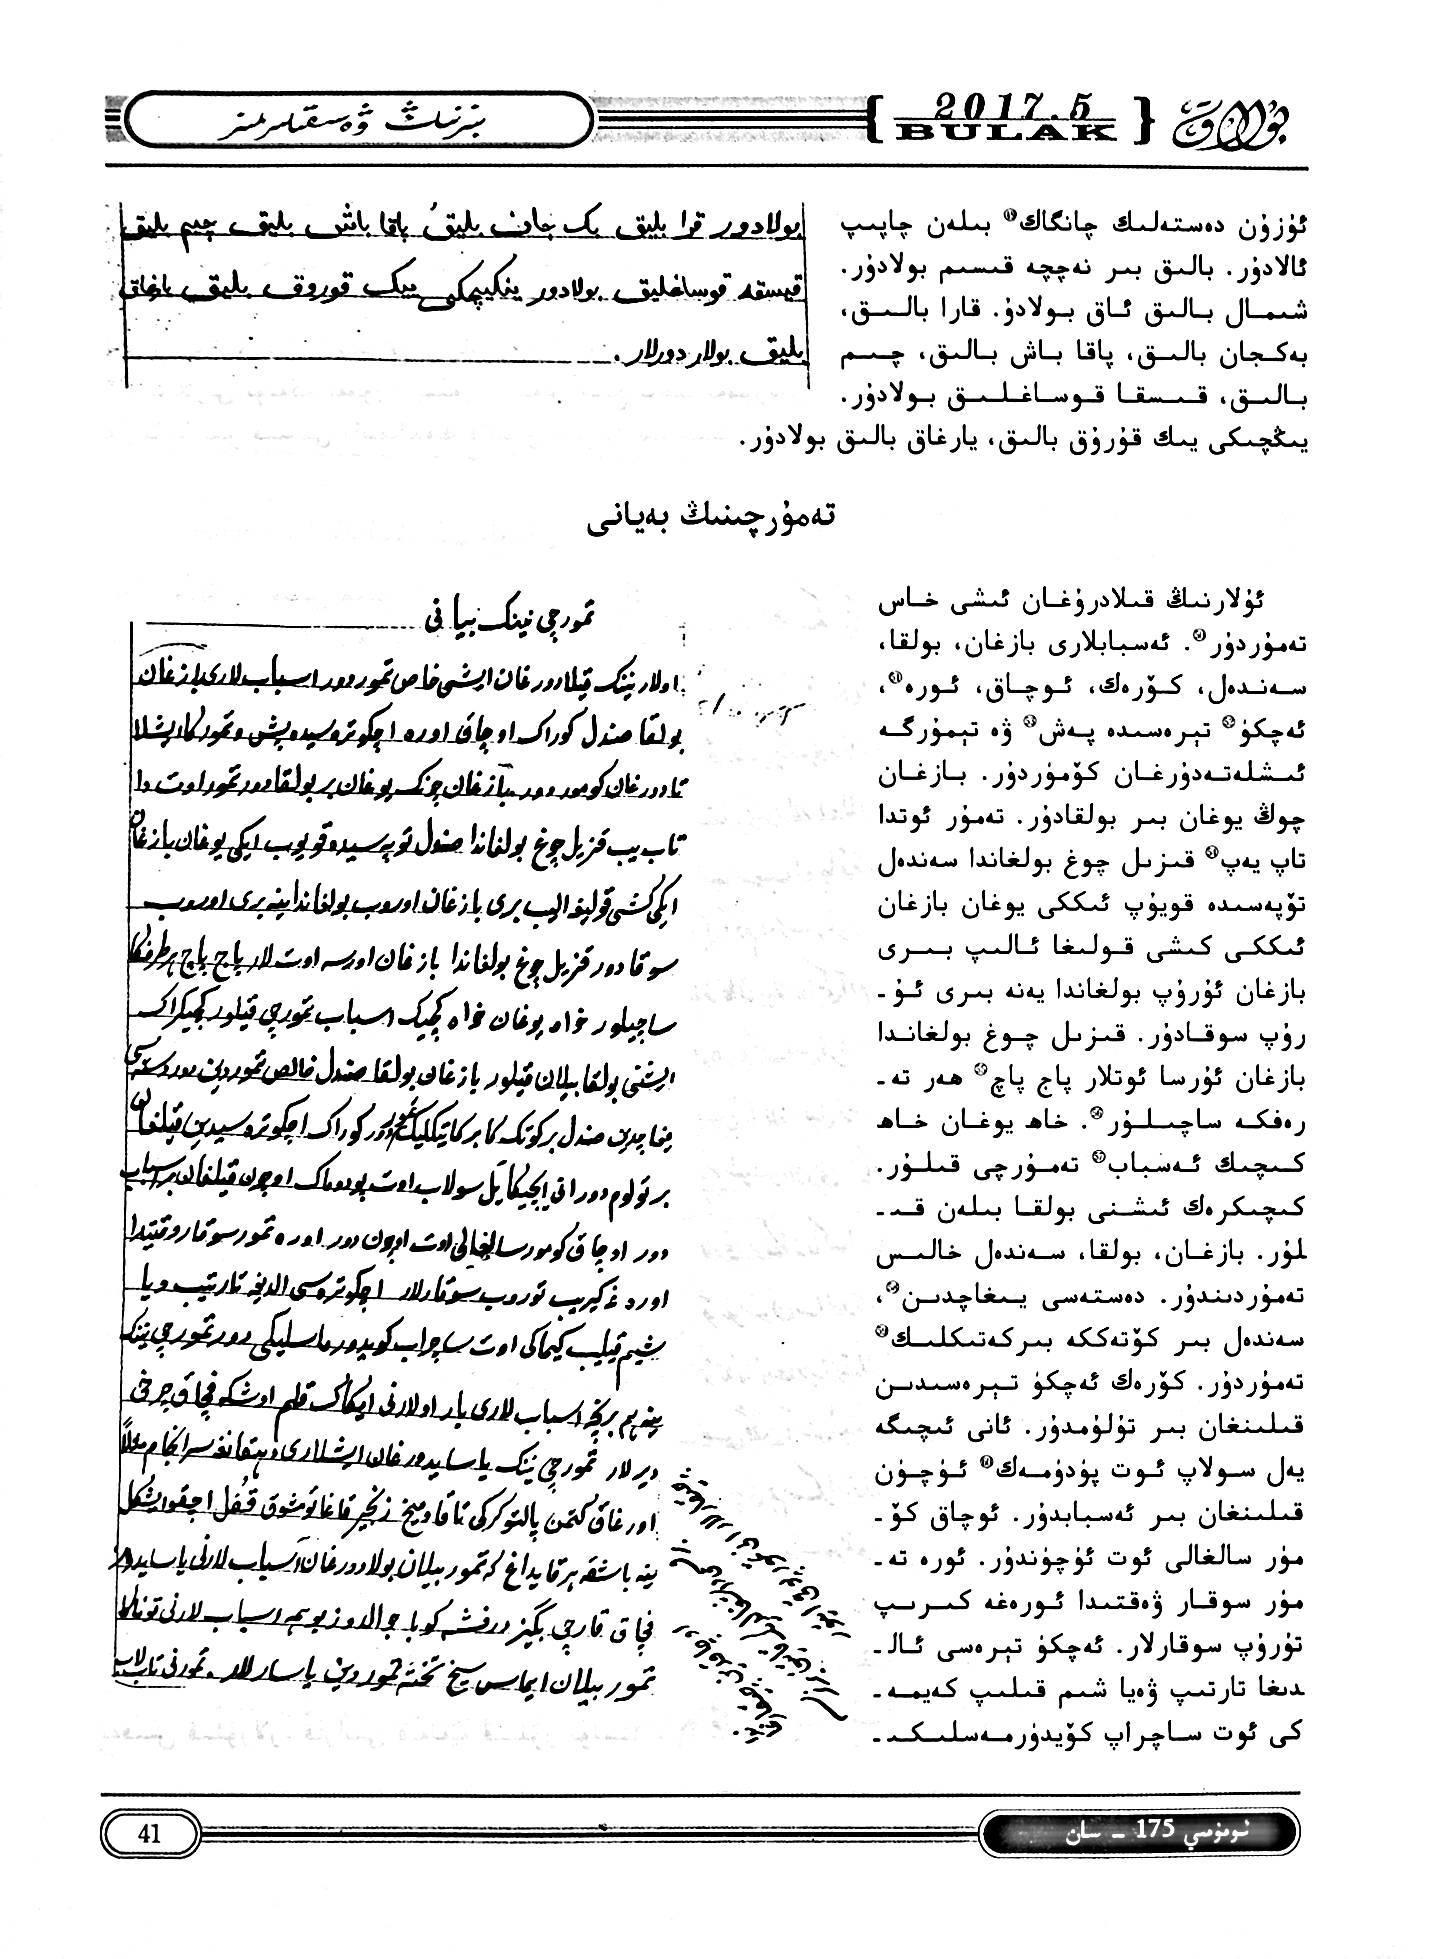 بۇلاق
2017.5
BULAK
بىزنىڭ ۋەسىقىلىرىمىز
ئۇزۇن دەستەلىك چانگاك⑰ بىلەن چاپىپ
ئالادۇر. بالىق بىر نەچچە قىسىم بولادۇر.
شىمال بالىق ئاق بولادۇ. قارا بالىق،
بەكجان بالىق، پاقا باش بالىق، چىم
بالىق، قىسقا قوساغلىق بولادۇر.
يىڭچىكى يىك قۇرۇق بالىق، يارغاق بالىق بولادۇر.
بولادور قرا بليق بك جان بليق پاقا باش بليق چيم بليق
قيسقه قوساغليق بولادور ينكيچكى ييك قوروق بليق يارغاق
بليق بولار دورلار.
تەمۇرچىنىڭ بەيانى
ئۇلارنىڭ قىلادرۇغان ئىشى خاس
تەمۇردۇر. ئەسبابلارى بازغان، بولقا،
سەندەل، كۆرەك، ئوچاق، ئورە،
ئەچكۇ تېرەسىدە پەش ۋە تېمۇرگە
ئىشلەتەدۇرغان كۆمۇردۇر. بازغان
چوڭ يوغان بىر بولقادۇر. تەمۇر ئوتدا
تاپ يەپ قىزىل چوغ بولغاندا سەندەل
تۆپەسىدە قويۇپ ئىككى يوغان بازغان
ئىككى كىشى قولىغا ئالىپ بىرى
بازغان ئۇرۇپ بولغاندا يەنە بىرى ئۇ-
رۇپ سوقادۇر. قىزىل چوغ بولغاندا
بازغان ئۇرسا ئوتلار پاچ پاچ ھەر تە-
رەفكە ساچىلۇر. خاھ يوغان خاھ
كىچىك ئەسباب تەمۇرچى قىلۇر.
كىچىكرەك ئىشنى بولقا بىلەن قى-
لۇر. بازغان، بولقا، سەندەل خالىس
تەمۇردىندۇر. دەستەسى يىغاچدىن،
سەندەل بىر كۆتەككە بىركەتىكلىك
تەمۇردۇر. كۆرەك ئەچكۇ تېرەسىدىن
قىلىنغان بىر تۇلۇمدۇر. ئانى ئىچىگە
يەل سولاپ ئوت پۇدۇمەك ئۇچۇن
قىلىنغان بىر ئەسبابدۇر. ئوچاق كۆ-
مۇر سالغالى ئوت ئۇچۇندۇر. ئورە تە-
مۇر سوقار ۋەقتىدا ئورەغە كىرىپ
تۇرۇپ سوقارلار. ئەچكۇ تېرەسى ئالـ-
دىغا تارتىپ ۋەيا شىم قىلىپ كەيمە-
كى ئوت ساچراپ كۆيدۇرمەسلىكى-
تمورچى نينك بيانى
اولارنينك قيلادورغان ايشى خاص تموردور اسباب لارى بازغان
بولقا صندل كوراك اوچاق اوره اچكو تروسيده پش و تموركا ايشلا
تادورغان كوموردور بازغان چونك يوغان بر بولقادور تمور اوت دا
تاب ييب قزيل چوغ بولغاندا صندل توپه سيده قويوب ايكى يوغان بازغان
ايكى كشى قوليغه اليب برى بازغان اوروب بولغاندا ينه برى اوروب
سوقادور قزيل چوغ بولغاندا بازغان اورسه اوت لار پاچ پاچ هر طرفكا
ساچيلور خواه يوغان خواه كچيك اسباب تمورچى قيلور كچيكراك
ايشنى بولقا بيلان قيلور بازغان بولقا صندل خالص تموردين دور دسته سى
يغاچدين صندل بر كوتك كا بر كاتيكليك تمور دور كوراك اچكو تروسيدين قيلغان
بر تولوم دور انى ايچيكا يل سولاب اوت پودوماك اوچون قيلغان بر اسباب
دور اوچاق كومور سالغالى اوت اوچون دور اوره تمور سوقار وقتيدا
اوره غه كيريب توروب سوقارلار اچكو تروسى الديغه تارتيب ويا
شيم قيليب كيماكى اوت ساچراب كويدورماسليكى دور تمورچى نينك
ينه هم برنچه اسباب لارى بار اولارنى ايكاك قلم اوشكه قچاق چرخى
ديرلار تمورچى نينك ياسايدورغان ايشلارى دهقانغه سرانجام مثلاً
اورغاق كتمن پالتو كركى تاقا و ميخ زنجير قاغا توموق قفل اچقو ايشكل
ينه باشقه هر قايداغ كه تمور بيلان بولادورغان اسباب لارنى ياسايدور
قچاق قارچى بگيز درفشه كوبا جوالدوز بو همه اسباب لارنى
تمور بيلان ايماس سيخ تخته تموردين ياسارلار. تمورنى تاب لاب
ئومۇمىي 175 - سان
41